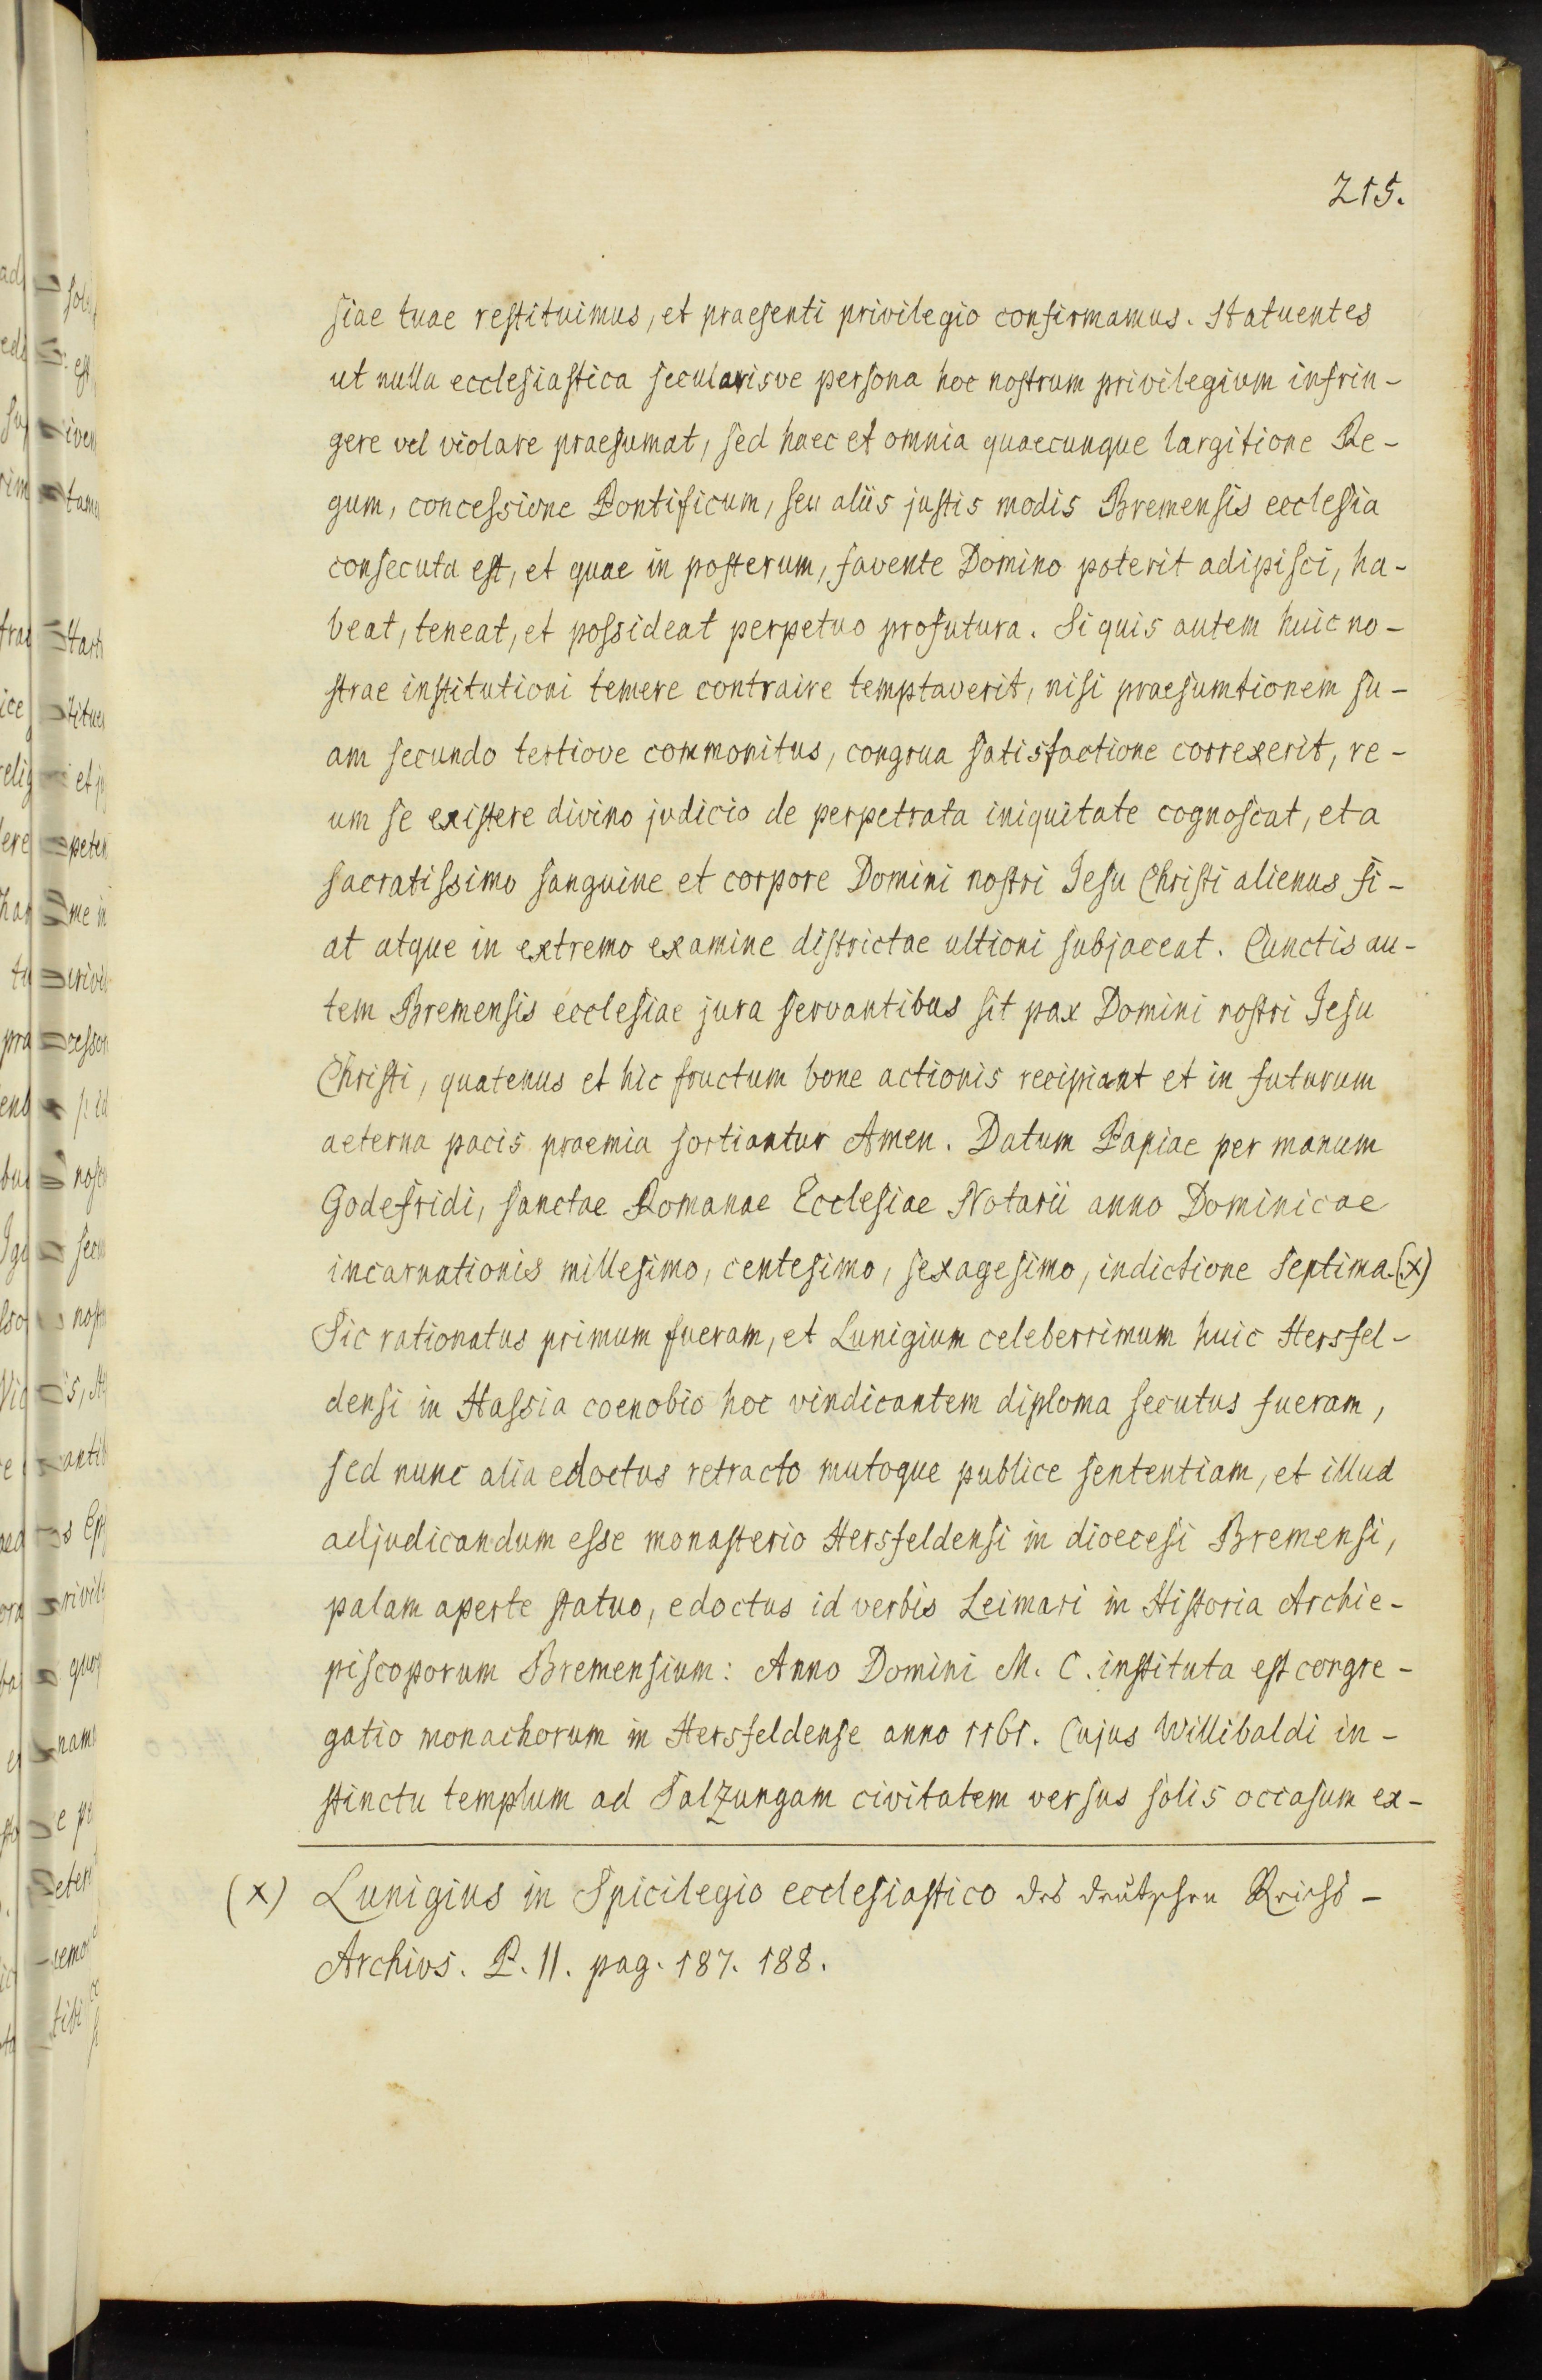 215.
siae tuae restituimus, et praesenti privilegio confirmamus. Statuentes
ut nulla ecclesiastica secularisve persona hoc nostrum privilegium infrin-
gere vel violare praesumat, sed haec et omnia quaecunque largitione Re-
gum, concessione Pontificum, seu aliis justis modis Bremensis ecclesia
consecuta est, et quae in posterum, favente Domino poterit adipisci, ha-
beat, teneat, et possideat perpetuo profutura. Si quis autem huic no-
strae institutioni temere contraire temptaverit, nisi praesumtionem su-
am secundo tertiove commonitus, congrua satisfactione correxerit, re-
um se existere divino judicio de perpetrata iniquitate cognoscat, et a
sacratissimo sanguine et corpore Domini nostri Jesu Christi alienus fi-
at atque in extremo examine districtae ultioni subjaceat. Cunctis au-
tem Bremensis ecclesiae jura servantibus sit pax Domini nostri Jesu
Christi, quatenus et hic fructum bone actionis recipiant et in futurum
aeterna pacis praemia sortiantur Amen. Datum Papiae per manum
Godefridi, sanctae Romanae Ecclesiae Notarii anno Dominicae
incarnationis millesimo, centesimo, sexagesimo, indictione septima.(x)
Sic rationatus primum fueram, et Lunigium celeberrimum huic Hersfel-
densi in Hassia coenobio hoc vindicantem diploma secutus fueram,
sed nunc alia edoctus retracto mutoque publice sententiam, et illud
adjudicandum esse monasterio Hersfeldensi in dioecesi Bremensi,
palam aperte statuo, edoctus id verbis Leimari in Historia Archie-
piscoporum Bremensium: Anno Domini M. C. instituta est congre-
gatio monachorum in Hersfeldense anno 1161. Cujus Willibaldi in-
stinctu templum ad Salzungam civitatem versus solis occasum ex-
(x) Lunigius in Spicilegio ecclesiastico des deütschen Reichs-
Archivs. P. II. pag. 187. 188.